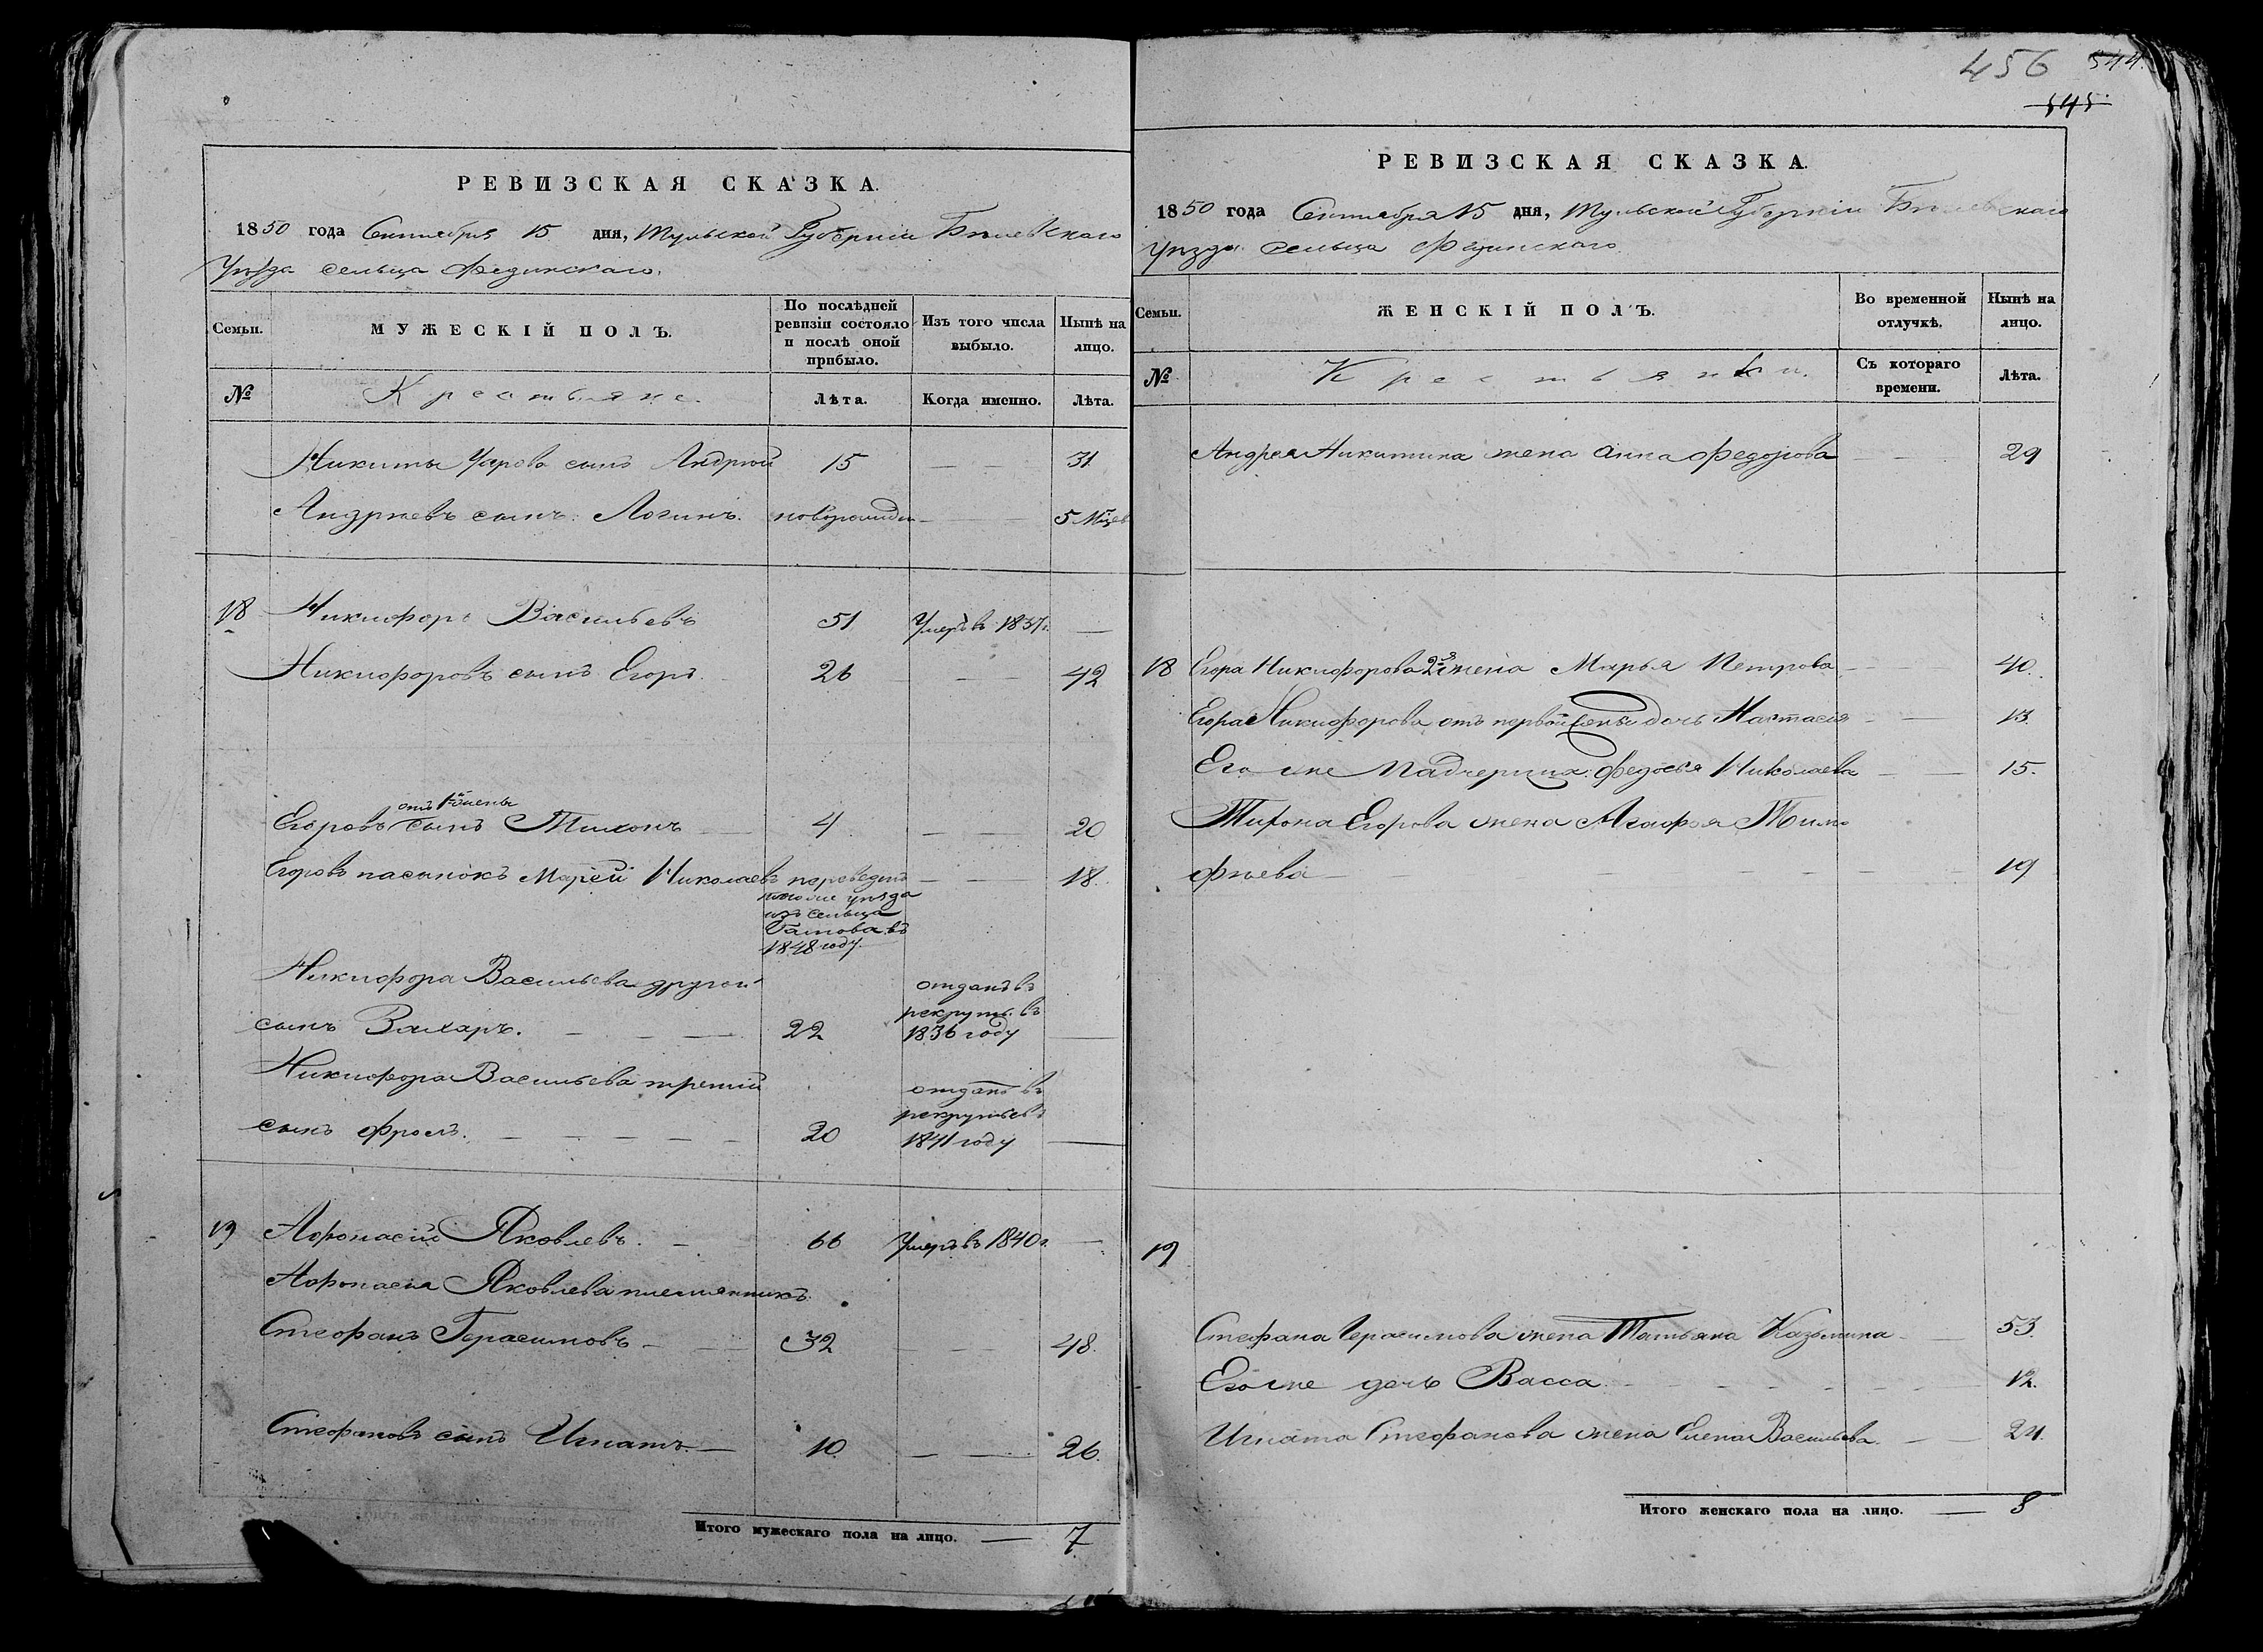 РЕВИЗСКАЯ СКАЗКА.
1850 года Сентября 15 дня, Тульской Губерніи Бѣлевскаго
Уѣзда сельца Фединскаго.
Семьи.
МУЖЕСКІЙ ПОЛЪ.
По послѣдней ревизіи состояло и послѣ оной прибыло.
Изъ того числа выбыло.
Нынѣ на лицо.
№
Крестьяне.
Лѣта.
Когда именно.
Лѣта.
Никиты Уарова сынъ Андрей 15 — — 31
Андреевъ сынъ Логинъ. новорожден — — 5 Мцев
18 Никифоръ Васильевъ 51 Умеръ въ 1837г. —
Никифоровъ сынъ Егоръ. 26 — — 42
отъ 1й жены
Егоровъ сынъ Тихонъ — 4 — — 20
Егоровъ пасынокъ Марей Николаевъ переведенъ — — 18.
того же уѣзда
изъ сельца
въ
1848 году.
Никифора Васильева другой
отданъ въ
рекруты въ
сынъ Захаръ. — — — 22 1836 году —
Никифора Васильева третій
отданъ въ
рекруты въ
сынъ Фролъ. — — — — — 20 1841 году —
19 Афонасій Яковлевъ. — 66 Умеръ въ 1840г. —
Афонасія Яковлева племянникъ
Стефанъ Герасимовъ — — 32 — — 48.
Стефановъ сынъ Игнатъ. — 10 — — 26.
Итого мужескаго пола на лицо. — 7.
456 544.
545.
РЕВИЗСКАЯ СКАЗКА.
1850 года Сентября 15 дня, Тульской Губерніи Бѣлевскаго
Уѣзда сельца Фединскаго.
Семьи.
ЖЕНСКІЙ ПОЛЪ.
Во временной отлучкѣ.
Нынѣ на лицо.
№
Крестьянки.
Съ котораго времени.
Лѣта.
Андрея Никитина жена Анна Федорова — — 29
18 Егора Никифорова 2я жена Марья Петрова — — 40.
Егора Никифорова отъ первой жены дочь Настасья — — 13.
Его же падчерица: Федосья Николаева — — 15.
Тихона Егорова жена Агафья Тимо
фѣева — — — — — 19
19
Стефана Герасимова жена Татьяна Казьмина — — 53.
Его же дочь Васса. — — — — 12.
Игната Стефанова жена Елена Васильева. — — 24.
Итого женскаго пола на лицо. — 8